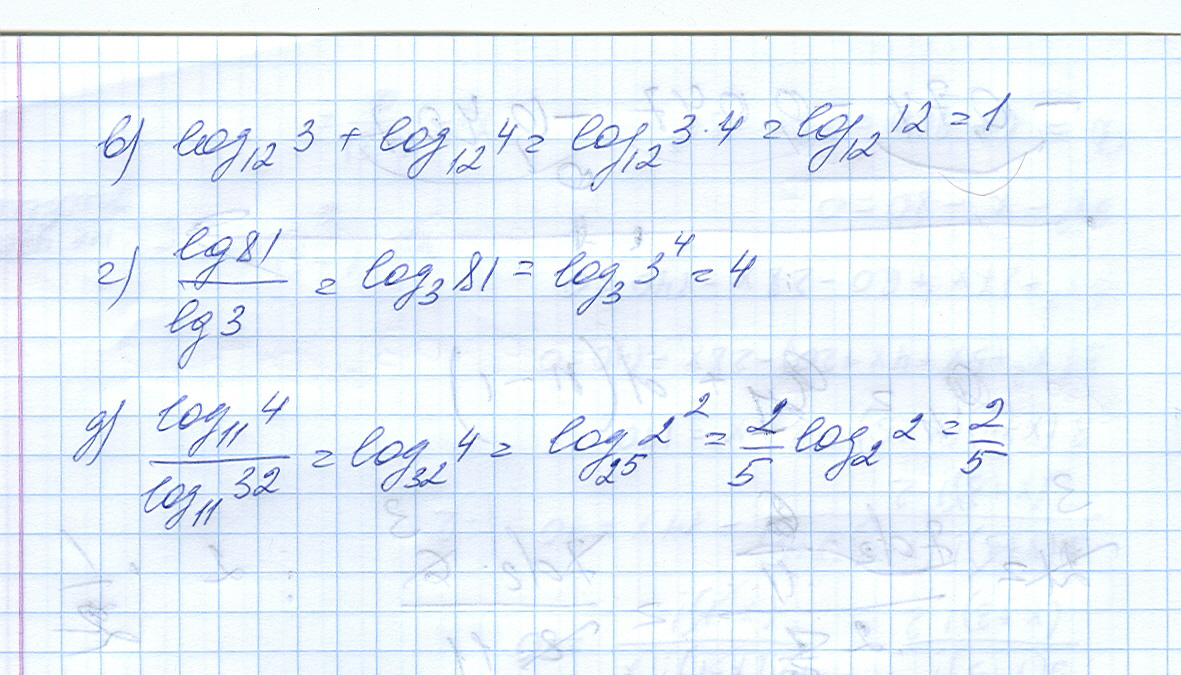 в) log₁₂ 3 + log₁₂ 4 = log₁₂ 3·4 = log₁₂ 12 = 1
г) lg 81 / lg 3 = log₃ 81 = log₃ 3⁴ = 4
д) log₁₁ 4 / log₁₁ 32 = log₃₂ 4 = log₂⁵ 2² = 2/5 log₂ 2 = 2/5